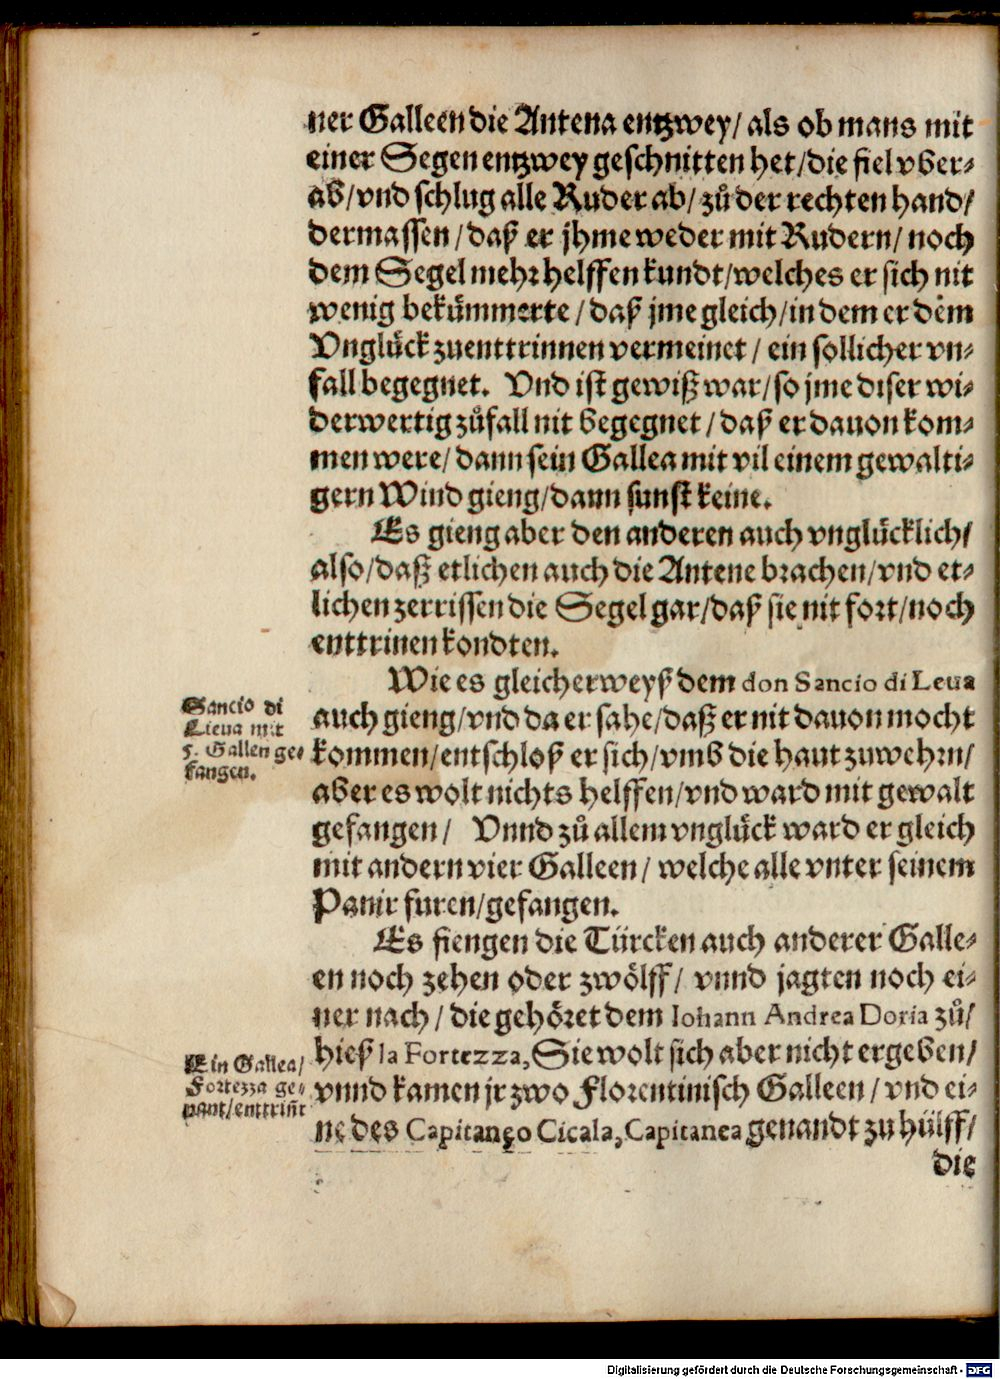 ner Galleen die Antena entzwey/ als ob mans mit
einer Segen entzwey geschnitten het/die fiel vber-
ab/vnd schlug alle Ruder ab/ zů der rechten hand/
dermassen/daß er jhme weder mit Rudern/ noch
dem Segel mehr helffen kundt/welches er sich nit
wenig bekümmerte/daß jme gleich/in dem er dem
Vnglück zuenttrinnen vermeinet/ ein sollicher vn-
fall begegnet. Vnd ist gewiß war/so jme diser wi-
derwertig zůfall nit begegnet/daß er dauon kom-
men were/dann sein Gallea mit vil einem gewalti-
gern Wind gieng/dann sunst keine.
Es gieng aber den anderen auch vnglücklich/
also/daß etlichen auch die Antene brachen/vnd et-
lichen zerrissen die Segel gar/daß sie nit fort/noch
enttrinen kondten.
Wie es gleicherweyß dem don Sancio di Leua
auch gieng/vnd da er sahe/daß er nit dauon mocht
kommen/entschloß er sich/vmb die haut zuwehrn/
aber es wolt nichts helffen/vnd ward mit gewalt
gefangen/ Vnnd zů allem vnglück ward er gleich
mit andern vier Galleen/ welche alle vnter seinem
Panir furen/gefangen.
Sancio di
Lieua mit
5. Gallen ge-
fangen.
Es fiengen die Türcken auch anderer Galle-
en noch zehen oder zwölff/ vnnd jagten noch ei-
ner nach/ die gehöret dem Iohann Andrea Doria zů/
hieß la Fortezza, Sie wolt sich aber nicht ergeben/
vnnd kamen jr zwo Florentinisch Galleen/vnd ei-
ne des Capitango Cicala, Capitanea genandt zu hülff/
Ein Gallea/
Fortezza ge-
nant/enttriñt
die
Digitalisierung gefördert durch die Deutsche Forschungsgemeinschaft - DFG